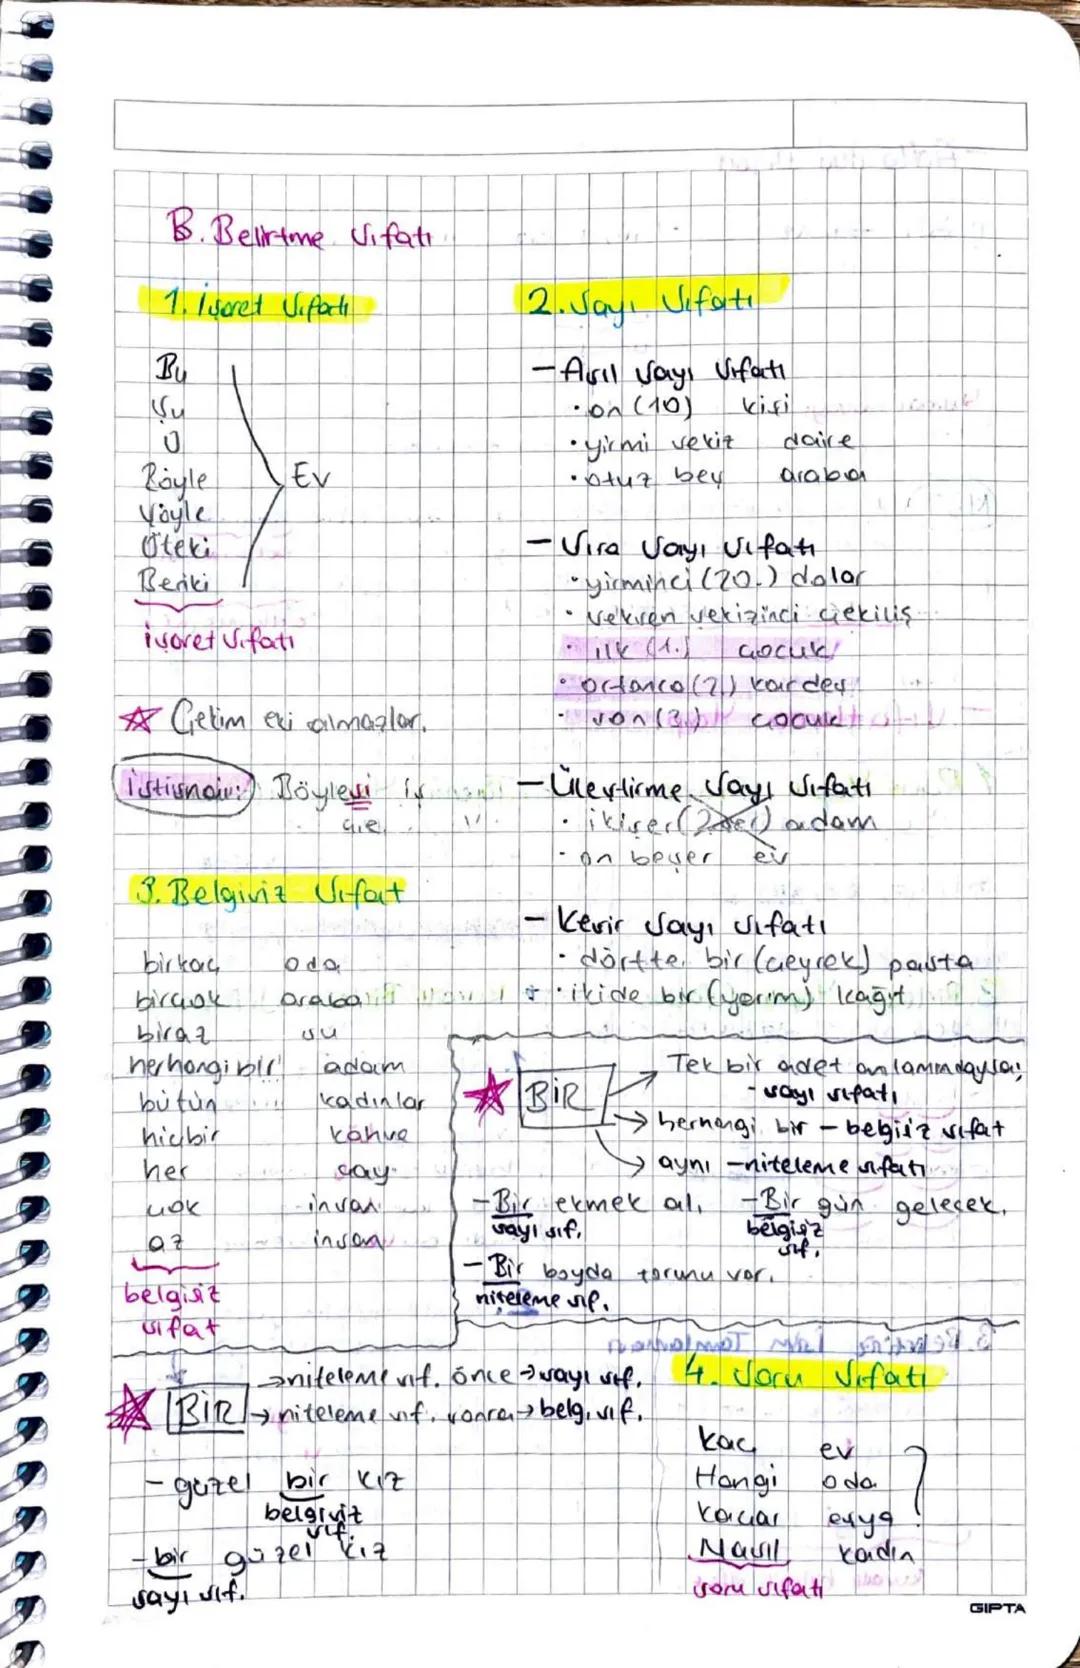 B. Belirtme Sıfatı
1. İşaret Sıfatı
Bu
Şu
O
Böyle
Şöyle
Öteki
Beriki
Ev
işaret sıfatı
☆ Çekim eki almazlar.
istisnası: Böylesi iş
ç.e.
2. Sayı Sıfatı
- Asıl sayı sıfatı
• on (10) kişi
• yirmi sekiz daire
• otuz beş araba
- Sıra Sayı sıfatı
• yirminci (20.) dolar
• seksen sekizinci çekiliş
• ilk (1.) çocuk
• ortanca (2.) kardeş
• son (3.) çocuk
- Üleştirme Sayı sıfatı
• ikişer (2şer) adam
• on beşer ev
- Kesir Sayı sıfatı
• dörtte bir (çeyrek) pasta
• ikide bir (yarım) kağıt
3. Belgisiz Sıfat
birkaç oda
birçok araba
biraz su
herhangi bir adam
bütün kadınlar
hiçbir kahve
her çay
çok insan
az insan
belgisiz
sıfat
☆ BİR
→ Tek bir adet anlamındaysa;
- sayı sıfatı
→ herhangi bir - belgisiz sıfat
→ aynı - niteleme sıfatı
- Bir ekmek al.
sayı sıf.
- Bir gün gelecek.
belgisiz
sıf.
- Bir boyda torunu var.
niteleme sıf.
☆ BİR
→ niteleme sıf. önce → sayı sıf.
→ niteleme sıf. sonra → belg. sıf.
- güzel bir kız
belgisiz
sıf.
- bir güzel kız
sayı sıf.
4. Soru Sıfatı
Kaç ev
Hangi oda
Kaçar eşya
?
Nasıl kadın
soru sıfatı
GIPTA